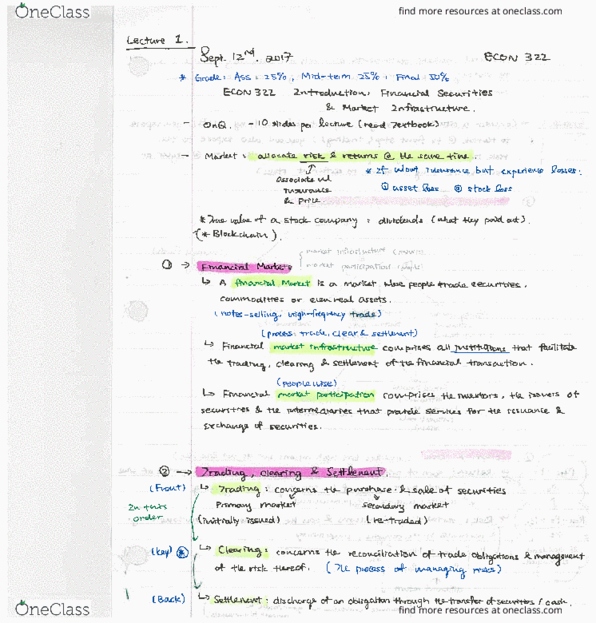 OneClass
find more resources at oneclass.com
Lecture 1.
Sept. 12nd. 2017 ECON 322
* Grade: Ass: 25%, Mid-term 25%, Final 50%
ECON 322 Introduction: Financial Securities
& Market Infrastructure.
- OnQ. - 10 slides per lecture (read textbook)
- Market: allocate risk & returns @ the same time
Associate w/
Insurance
& Price
* If want insurance but experience losses:
① asset loss ② stock loss
* True value of a stock company: dividends (what they paid out).
(* Blockchain).
market infrastructure
market participation
① → Financial Markets
↳ A financial Market is a market where people trade securities,
commodities or even real assets.
(notes-selling, high-frequency trade)
(process: trade, clear & settlement)
↳ Financial market infrastructure comprises all institutions that facilitate
the trading, clearing & settlement of the financial transaction.
(people wise)
↳ Financial market participation comprises the investors, the issuers of
securities & the intermediaries that provide services for the issuance &
exchange of securities.
② → Trading, clearing & Settlement.
(Front) ↳ Trading: concerns the purchase & sale of securities
In this
order
primary market secondary market
(initially issued) (re-traded)
(key) ↳ Clearing: concerns the reconciliation of trade obligations & management
of the risk thereof. (The process of managing risks)
(Back) ↳ Settlement: discharge of an obligation through the transfer of securities / cash.
OneClass
find more resources at oneclass.com